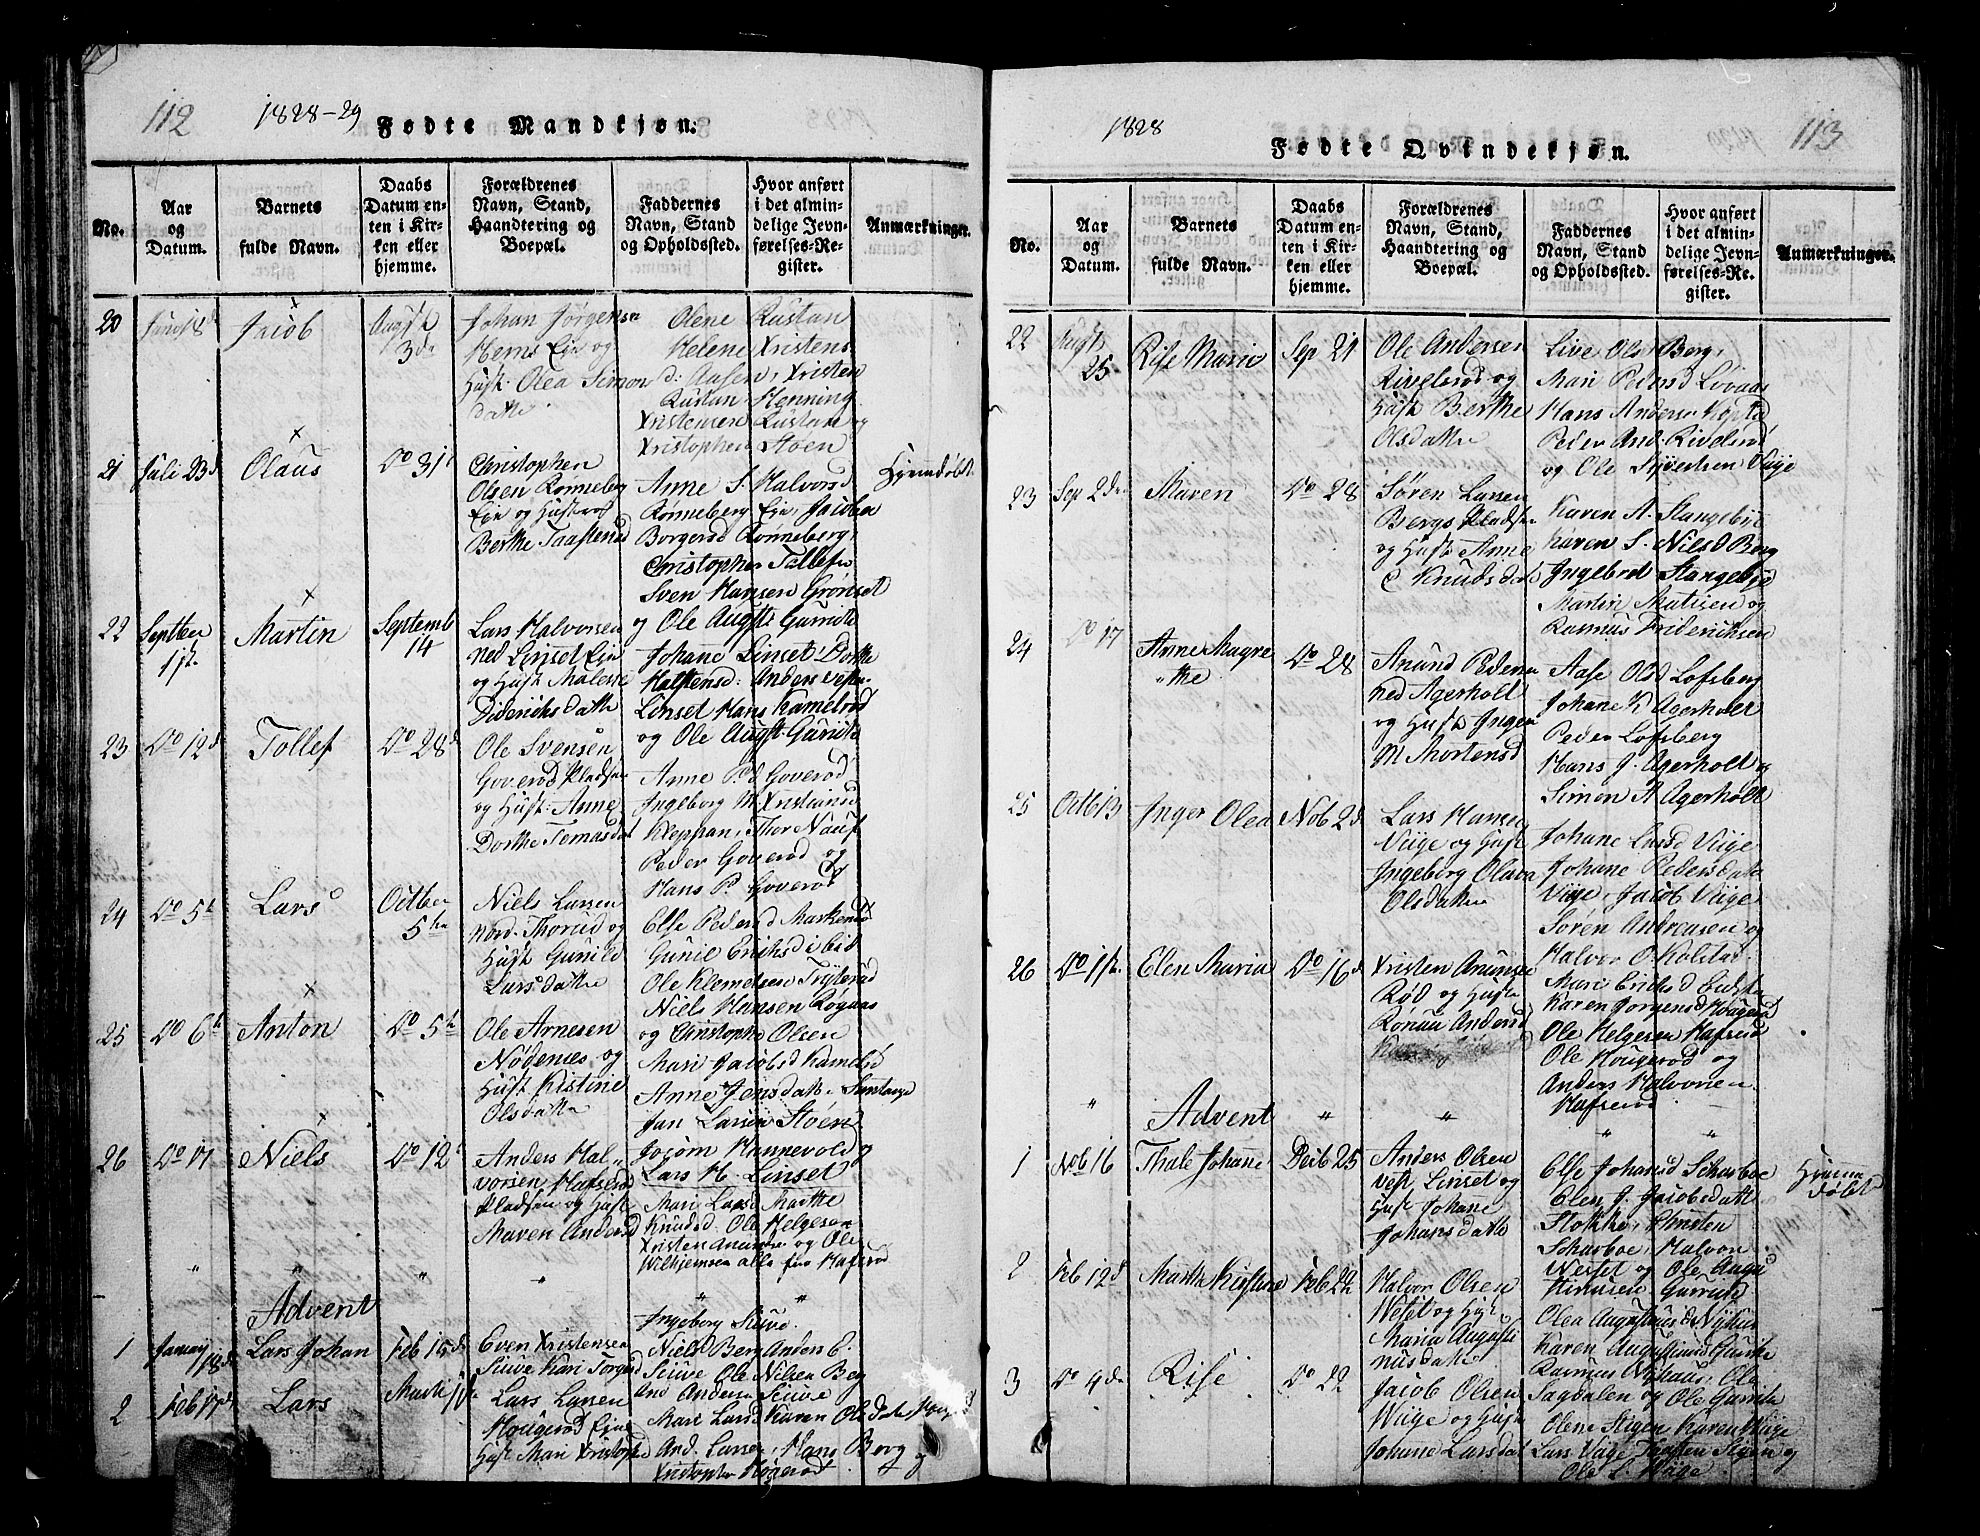 112
1828-29
Fødte Mandkjøn.
No.
Aar og Datum.
Barnets fulde Navn.
Daabs Datum enten i Kirken eller hjemme.
Forældrenes Navn, Stand, Haandtering og Boepæl.
Faddernes Navn, Stand og Opholdssted.
Hvor anført i det almindelige Jevnførelses-Register.
Anmærkninger.
20
Jacob
3de
Johan Jørgensen
Eje og
Hust. Olea Simons
datte
Olene Rustan
Helene Kristens
d: Aasen, Kristen
Rustan Henning
Kristensen Rustan og
Kristopher Støen
21
Juli 23d
Olaus
Do 31
Christophen
Olsen Rønneberg
Eje og Hustrue
Berthe
Anne S. Halvorsd
Rønneberg Eje, Jacobea
Borgersd Rønneberg,
Christopher Tollefsen
Sven Hansen Grønset
og Ole Augsti Gurride
Hjemdøbt
22
Martin
Septemb
14
Lars Halvorsen
ned Linset Eje
og Hust
Dideriksdatte
Johane Linset, Dorthe
Halstensd: Anders
Linset Hans Kamelrød
og Ole Augst. Gurride
23
Do 12d
Tollef
Do 28d
Ole Svensen
Goverød Pladsen
og Hust: Anne
Dorthe Tomasdat
Anne Pd Goverød
Ingeborg M Kristiansd
Kleppan, Thor Nauf
Peder Goverød og
Hans P. Goverød
24
Do 5t
Lars
Octbr
5te
Niels Larsen
nord. Thorud og
Hust Gunild
Larsdatte
Else Pedersd Markerud
Gunil Eriksd
Ole Klemetsen
Niels Hansen
og Christophe Olsen
25
Do 6t
Anton
Do 5t
Ole Arnesen
Nødenes og
Hust Kistine
Olsdatte
Mari Jacobsd Kamelrød
Anne Jensdatte
Jan Larsen Støen
Jocom Hannevold og
Lars H. Linset
26
Do 17
Niels
Do 12t
Anders Hal-
vorsen Hafserød
Pladsen og Hust
Maren Andersd
Mari Larsd Marthe
Knudsd. Ole Helgesen
Kristen og Ole
Wilhjemsen alle fra Hafsrød
Advent
1
January
18d
Lars Johan
Feb 15d
Even Kristensen
Siuve Kari Torgersd
Ingeborg Siuve.
Niels Berg Anders E.
Siuve Ole Nilsen Berg
And Andersen Siuve
2
Feb 17d
Lars
Lars Larsen
Hougerød Eje
Hust Mari Kristophd
Mari Larsd Karen Olsdatte
And. Larsen, Hans Berg og
Kristopher Høgerød
1828
Fødte Qvindekjøn.
113
No.
Aar og Datum.
Barnets fulde Navn.
Daabs Datum enten i Kirken eller hjemme.
Forældrenes Navn, Stand, Haandtering og Boepæl.
Faddernes Navn, Stand og Opholdssted.
Hvor anført i det almindelige Jevnførelses-Register.
Anmærkninger.
22
Augt
25
Rise Marie
Sep 21
Ole Andersen
Rivelsrød og
Hust Berthe
Olsdatte
Live Olsd Berg,
Mari Pedersd
Hans Andersen
Peder And. Rivelsrød
og Ole Syvertsen Viige
23
Sep 2de
Maren
Do 28
Søren Larsen
Bergs Pladsen
og Hust Anne
Knudsdat
Karen A. Stangebye
Karen S. Niels Berg
Ingebret Stangebye
Martin Matisen og
Rasmus Frideriksen
24
Do 17
Anne Magre
the
Do 28
Anund Pedersen
ned Agerholt
og Hust Inger
M Mortensd
Aase Olsd Lofsberg
Johane K Agerholt
Peder Lofsberg
Hans J. Agerholt og
Simon A Agerholt
25
Octb 13
Inger Olea
Nob 2d
Lars Hansen
Viige og Hust
Ingeborg Olava
Olsdatte
Johane Larsd Viige
Johane Pedersdatte
Viige, Jacob Viige
Søren Andreasen og
Halvor O. Kolstad
26
Elen Maria
Do 16d
Kristen Anunsen
Rød og Hust
Rønau Andersd
Mari Eriksd
Karen Jørgensd Hougerød
Ole Helgesen Hafsrød
Ole Hougerød og
Anders Halvorsen
Hafsrød
Advent
1
Nob 16
Thale Johanne
Decb 25
Anders Olsen
vest Linset og
Hust Johane
Johansdatte
Else Johansd Scharboe
Elen J. Jacobsdatt
Stokke, Christen
Scharboe, Halvor
Westet og Ole Augu
stinusen Gurride
Hjemme
døbt
2
Feb 12d
Marthe Kistine
Feb 22
Halvor Olsen
Westet og Hust
Maria Augusti
nusdatte
Olea Augustinusd
Karen Augustinusd Gurride
Rasmus Nyhuus, Ole
Sagdalen og Ole Gurride
3
Do 4de
Rise
Do 22
Jacob Olsen
Wiige og Hust
Johane Larsdat
Olene Stigen Karen Wiige
Lars Viige Torsten Stigen og
Ole L. Wiige